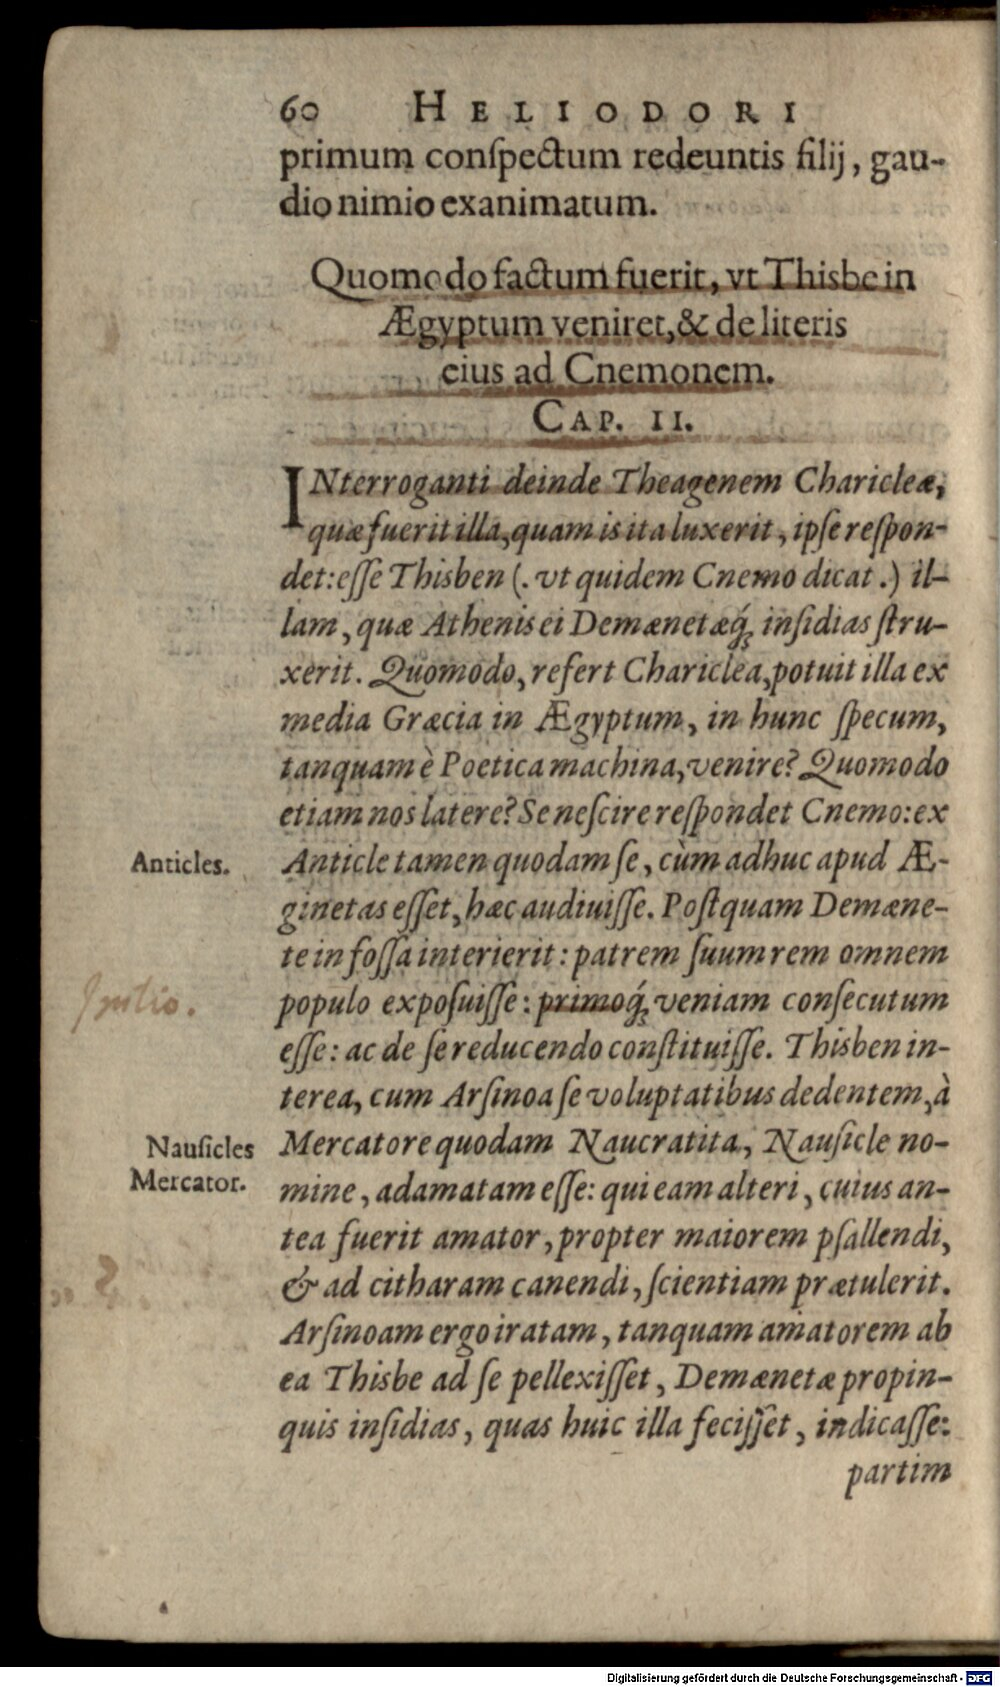 60 HELIODORI
primum conſpectum redeuntis filij, gau-
dio nimio exanimatum.
Quomodo factum fuerit, vt Thisbe in
Ægyptum veniret, & de literis
eius ad Cnemonem.
CAP. II.
INterroganti deinde Theagenem Charicleæ,
quæ fuerit illa, quam is ita luxerit, ipſe reſpon-
det: eſſe Thisben (. vt quidem Cnemo dicat .) il-
lam, quæ Athenis ei Demænetæq́; inſidias ſtru-
xerit. Quomodo, refert Chariclea, potuit illa ex
media Græcia in Ægyptum, in hunc ſpecum,
tanquam è Poetica machina, venire? Quomodo
etiam nos latere? Se neſcire reſpondet Cnemo: ex
Anticles.
Anticle tamen quodam ſe, cùm adhuc apud Æ-
ginetas eſſet, hæc audiuiſſe. Poſtquam Demæne-
te in foſſa interierit: patrem ſuum rem omnem
populo expoſuiſſe: primoq́; veniam conſecutum
eſſe: ac de ſe reducendo conſtituiſſe. Thisben in-
terea, cum Arſinoa ſe voluptatibus dedentem, à
Nauſicles
Mercator.
Mercatore quodam Naucratita, Nauſicle no-
mine, adamatam eſſe: qui eam alteri, cuius an-
tea fuerit amator, propter maiorem pſallendi,
& ad citharam canendi, ſcientiam prætulerit.
Arſinoam ergo iratam, tanquam amatorem ab
ea Thisbe ad ſe pellexiſſet, Demænetæ propin-
quis inſidias, quas huic illa feciſſet, indicaſſe:
partim
Digitalisierung gefördert durch die Deutsche Forschungsgemeinschaft - DFG